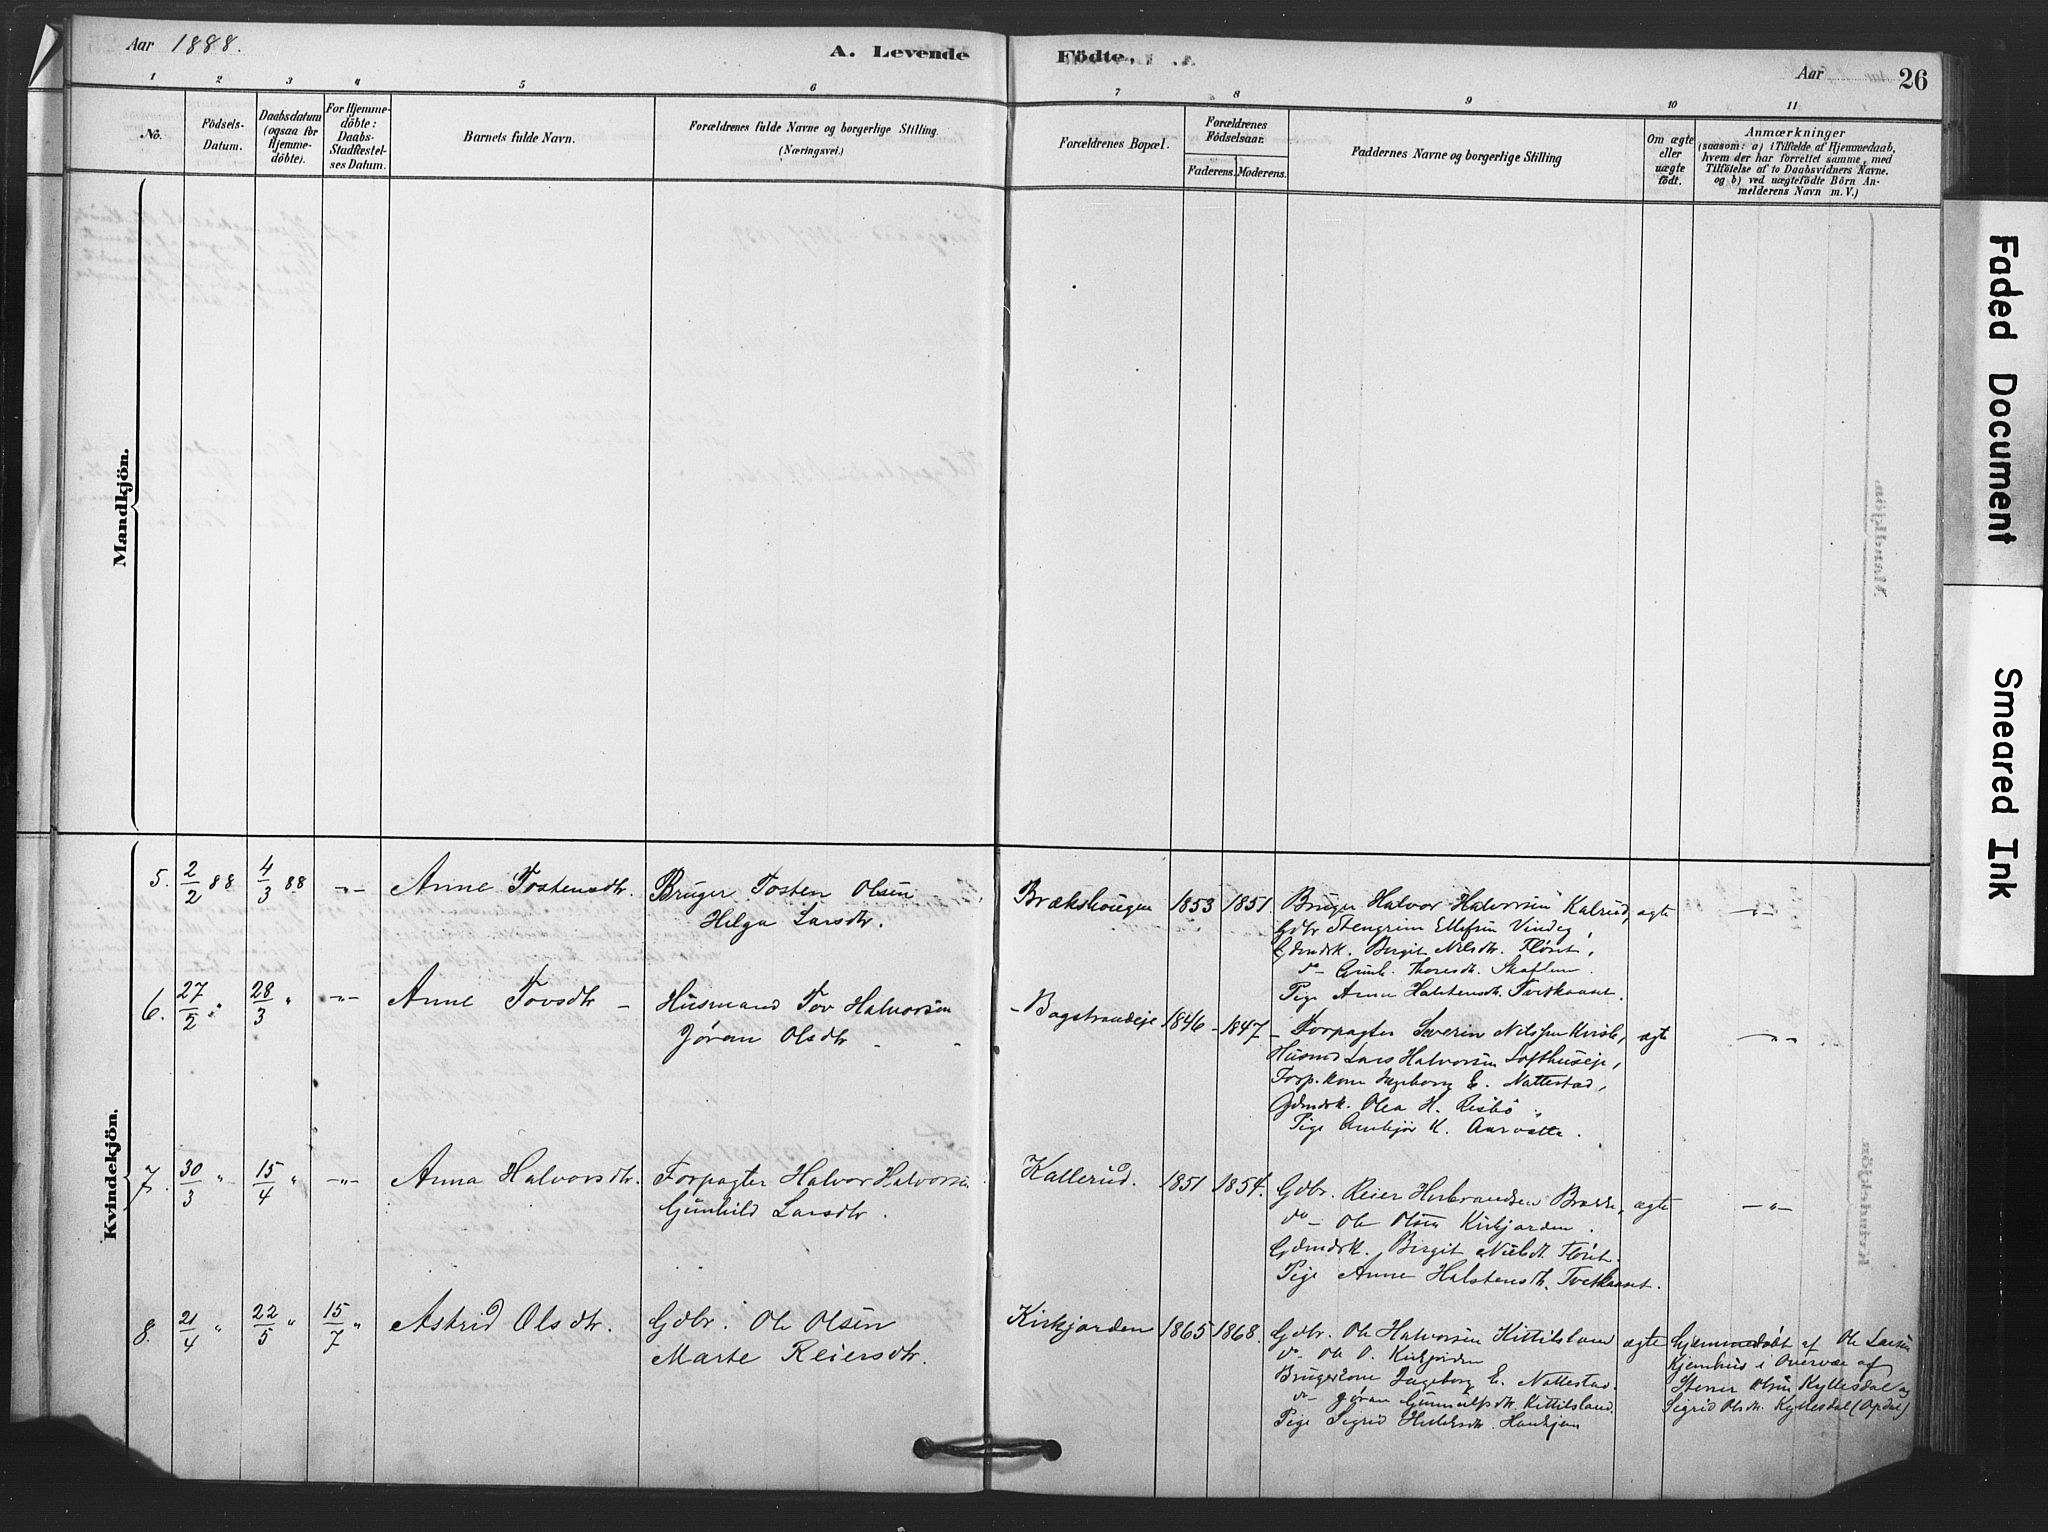 Aar 1888.
A. Levende Födte.
Aar
26
1 2 3 4 5 6 7 8 9 10 11
No.
Födsels-
Datum.
Daabsdatum
(ogsaa for
Hjemme-
döbte).
For Hjemme-
döbte:
Daabs-
Stadfæstel-
ses Datum.
Barnets fulde Navn.
Forældrenes fulde Navne og borgerlige Stilling.
(Næringsvei.)
Forældrenes Bopæl.
Forældrenes
Födselsaar.
Faderens. Moderens.
Faddernes Navne og borgerlige Stilling
Om ægte
eller
uægte
födt.
Anmærkninger
(saasom: a) i Tilfælde af Hjemmedaab,
hvem der har forrettet samme, med
Tilföielse af to Daabsvidners Navne.
og b) ved uægtefödte Börn An-
melderens Navn m. V.)
Mandkjön.
Kvindekjön.
5. 2/2 88 4/3 88 -"- Anne Tostensdtr. Bruger Tosten Olsen
Helga Larsdtr.
Brækshougen 1853 1851 Bruger Halvor Halvorsen Kalrud, ægte -"-
Gdbr Stengrim Ellefsen Vindeg,
Gdmdsk. Birgit Nilsdtr. Fløset,
do- Gunh. Thoresdtr. Skaflem.
Pige Anne Halstensdtr. Tvetkaaset.
6. 27/2 " 28/3 " -"- Anne Tovsdtr - Husmand Tov Halvorsen
Jøran Olsdtr
- Bagstrandeje 1846 - 1847 - Forpagter Severin Nilssen Kirsle, ægte -"-
Husmd Lars Halvorsen Lofthuseje,
Forp.kone Ingeborg E. Nattestad,
Gdmdsk. Olea H. Risbö,
Pige K.
7. 30/3 " 15/4 " -"- Anna Halvorsdtr. Forpagter Halvor Halvorsen
Gunhild Larsdtr.
Kallerud. 1851 1854. Gdbr. Reier Herbrandsen ægte -"-
do- Ole Olsen Kirkjorden.
Gdmdsk. Birgit Nilsdt. Fløset.
Pige Anne Halstensdtr. Tvetkaaset.
8. 21/4 " 22/5 " 15/7 " Astrid Olsdtr. Gdbr. Ole Olsen
Marte Reiersdtr.
Kirkjorden 1865 1868. Gdbr. Ole Halvorsen Kittilsland ægte Hjemmedøbt af Ole Larsen
do- Ole O. Kirkjorden
Kjemhus i Overvær af
Brugerkone Ingeborg E. Nattestad.
Stener Olsen Kyllesdal og
do- Jøran Gunnulfsdtr. Kittilsland.
Sigrid Olsdtr. Kyllesdal (Opdal)
Pige Sigrid
Faded Document
Smeared Ink